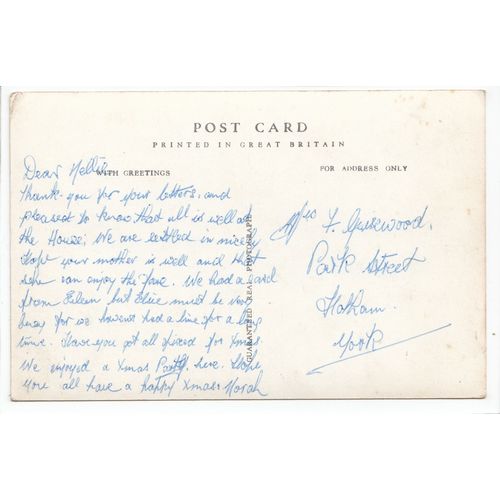 POST CARD
PRINTED IN GREAT BRITAIN
WITH GREETINGS
FOR ADDRESS ONLY
GUARANTEED REAL PHOTOGRAPH
Dear Nellie
Thank-you for your letters, and
pleased to know that all is well at
the House. We are settled in nicely
Hope your mother is well and that
she can enjoy the fare. We had a card
from Eileen but Elsie must be very
busy for we havent had a line for a long
time. Have you got all fixed for Xmas.
We enjoyed a Xmas Party here. Hope
you all have a happy Xmas. Norah
Mrs F.
Park Street
York